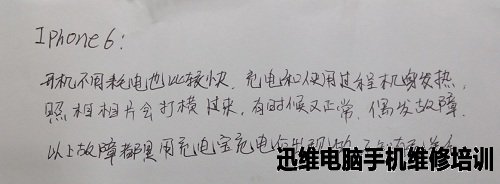 Iphone6:
开机不用耗电也比较快. 充电和使用过程机身发热.
照相相片会打横过来, 有时候又正常. 偶发故障.
以上故障都是用充电宝充电后出现的
迅维电脑手机维修培训